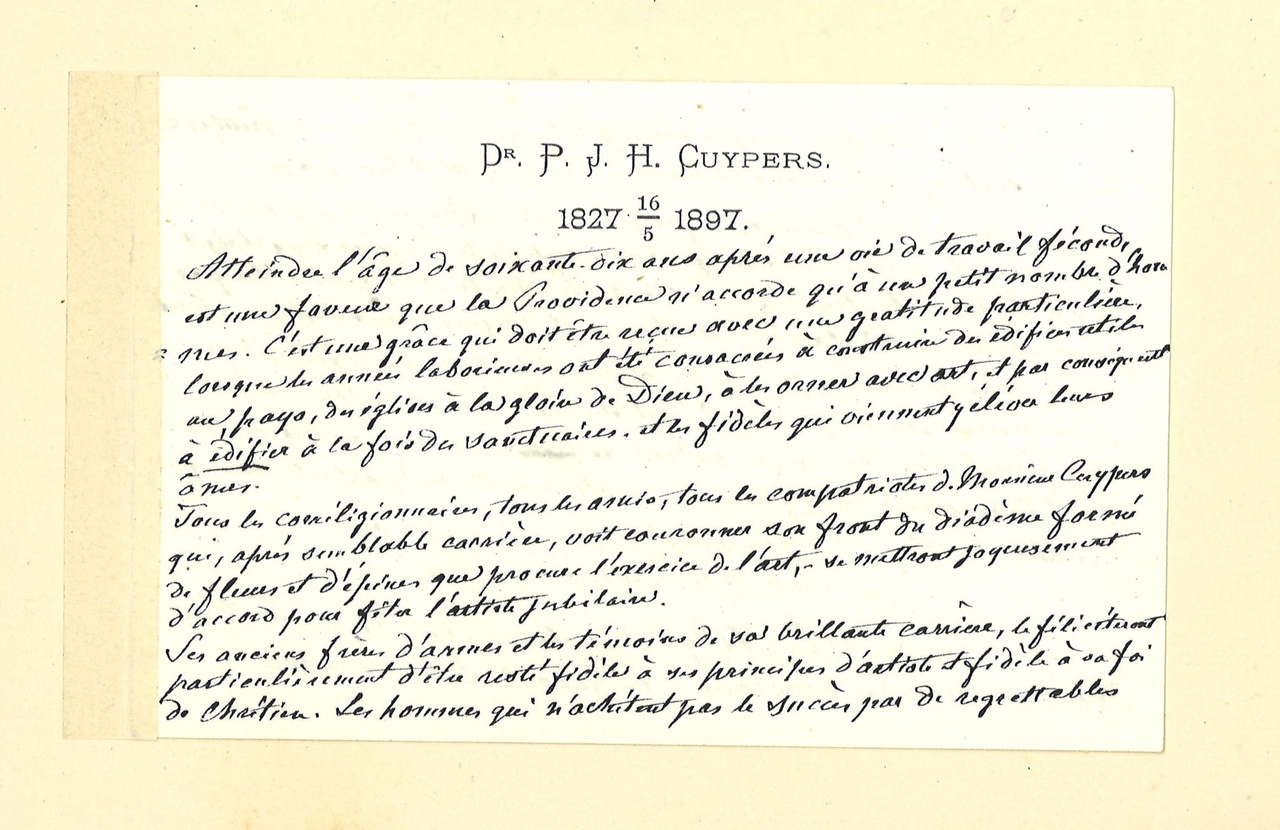 Dr. P. J. H. Cuypers.
1827 16/5 1897.
Atteindre l'âge de soixante-dix ans après une vie de travail féconde,
est une faveur que la Providence n'accorde qu'à un petit nombre d'hom
mes. C'est une grâce qui doit être reçue avec une gratitude particulière,
lorsque les années laborieuses ont été consacrées à construire des édifices utiles
au pays, des églises à la gloire de Dieu, à les orner avec art, et par conséquent
à édifier à la fois des sanctuaires. et les fidèles qui viennent y élever leurs
âmes.
Tous les coreligionnaires, tous les amis, tous les compatriotes de Monsieur Cuypers
qui, après semblable carrière, voit couronner son front du diadème formé
de fleurs et d'épines que procure l'éxercice de l'art, - se mettront joyeusement
d'accord pour fêter l'artiste jubilaire.
Ses anciens frères d'armes et les témoins de sa brillante carrière, le féliciteront
particulièrement d'être resté fidèle à ses principes d'artiste et fidèle à sa foi
de Chrétien. Les hommes qui n'achètent pas le succès par de regrettables